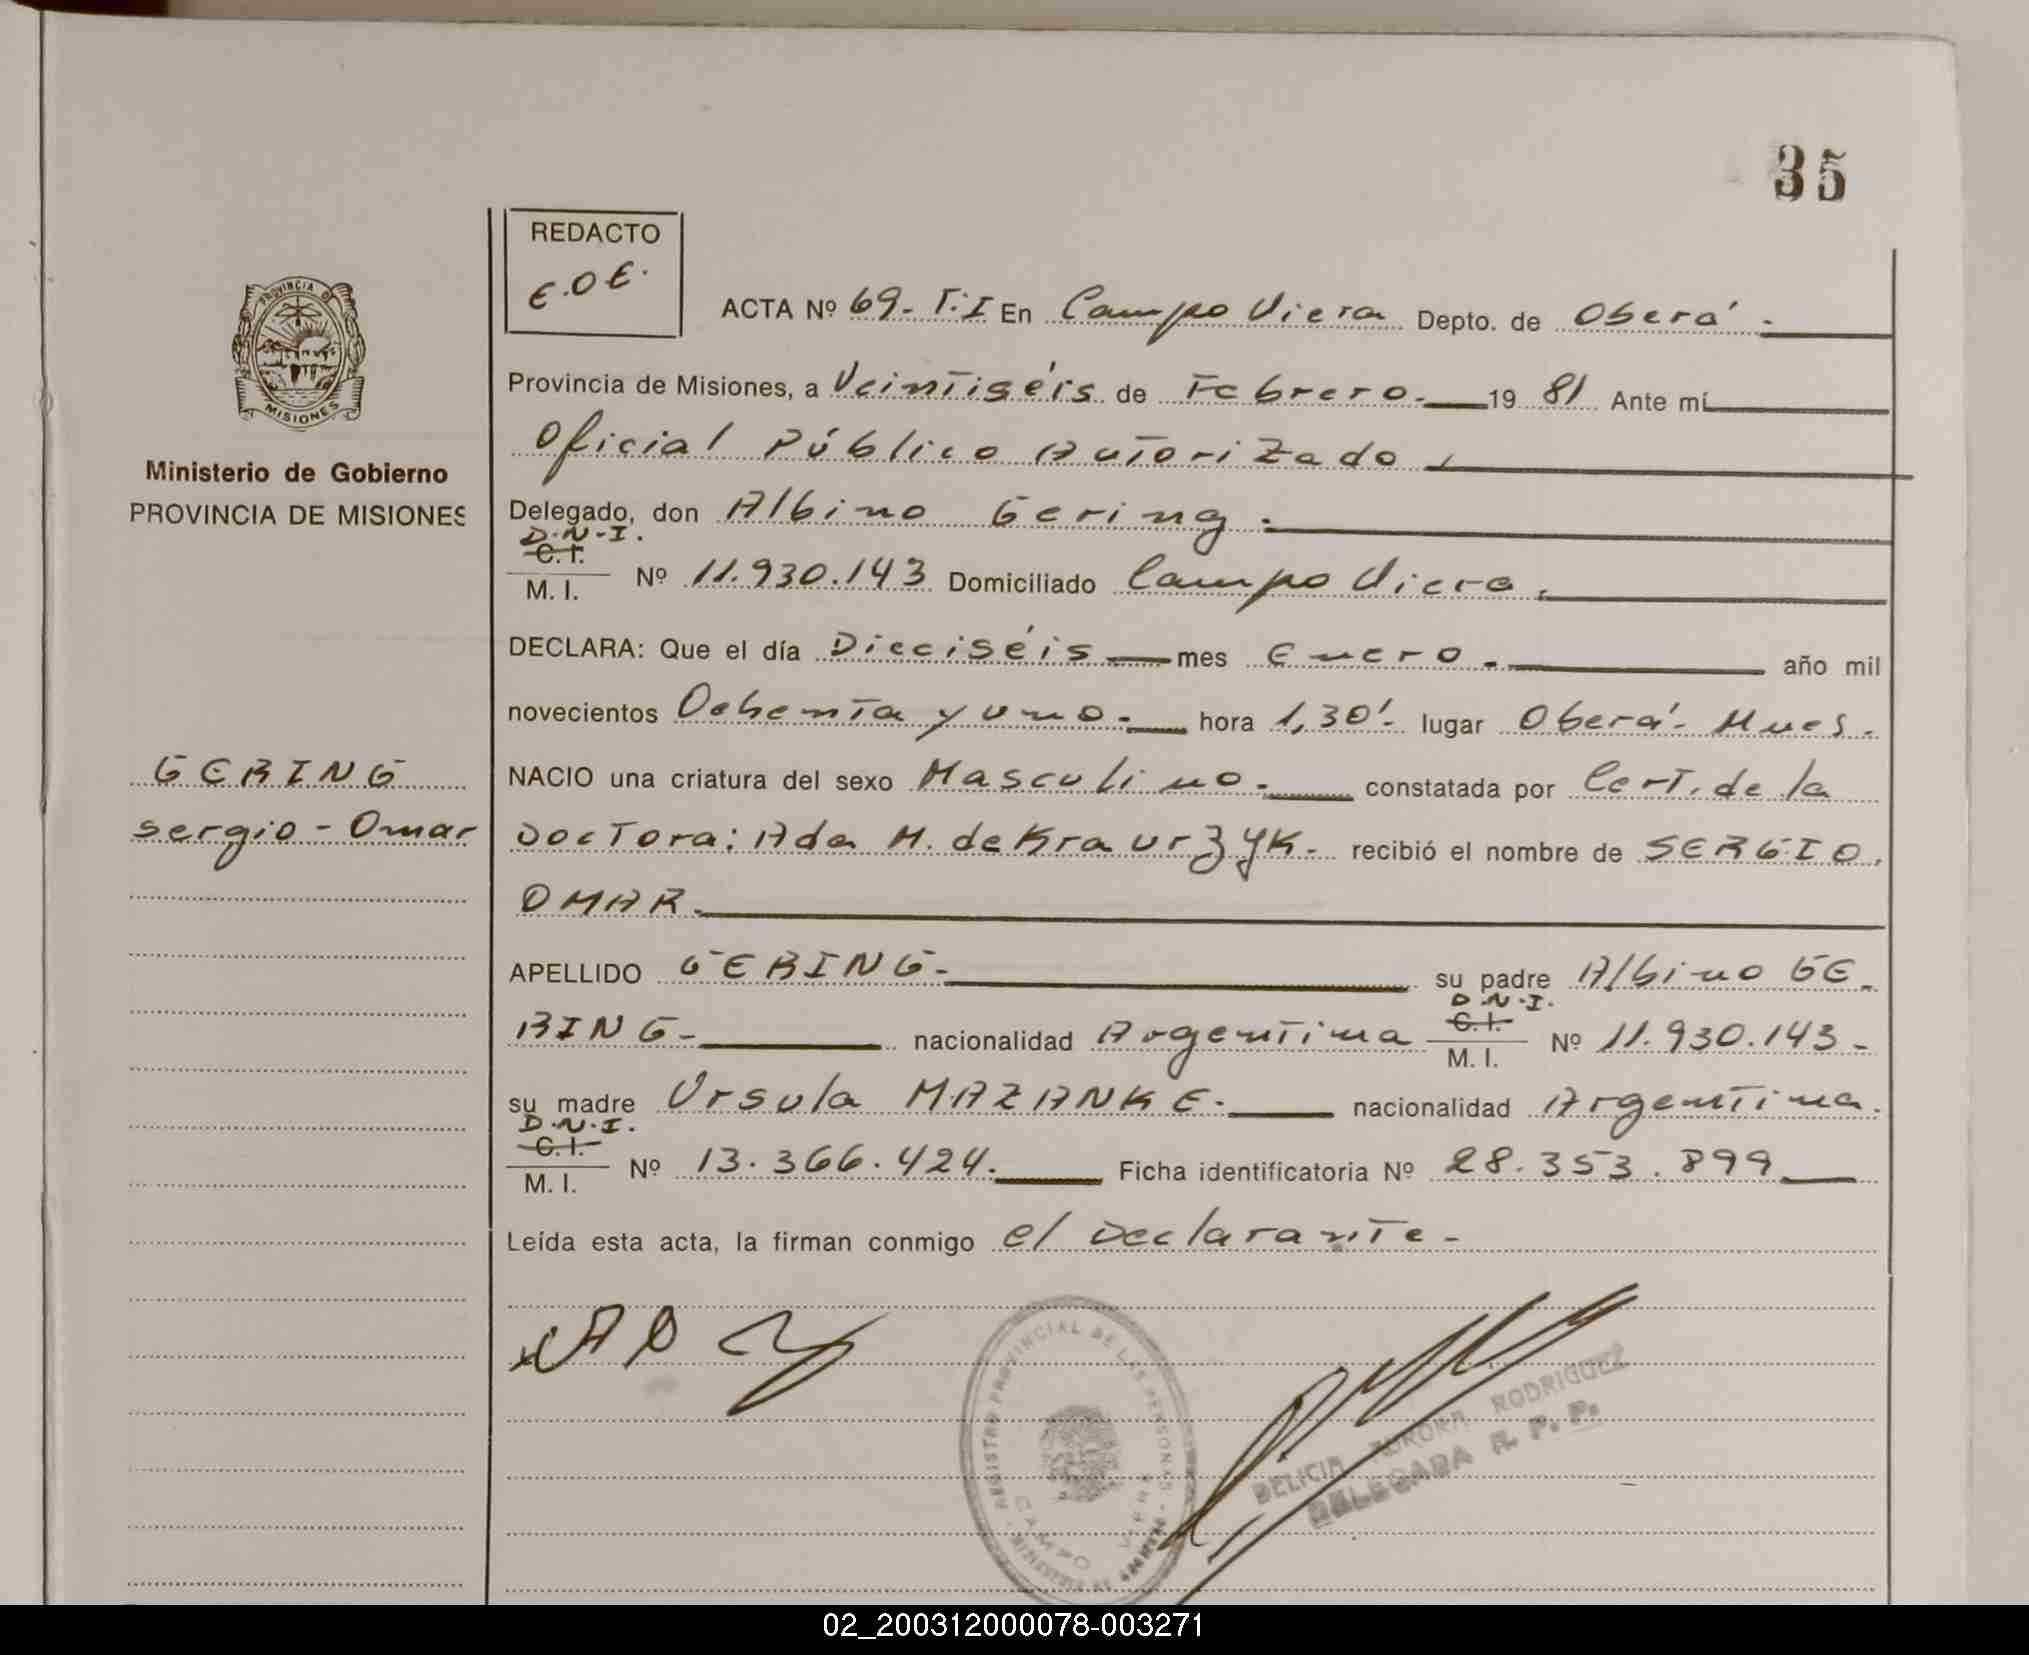 35
REDACTO
E.O.E.
ACTA Nº 69-T:I En Campo Viera Depto. de Oberá.
Provincia de Misiones, a Veintiséis de Febrero. 19 81 Ante mí
Oficial Público Autorizado.
Delegado, don Albino Gering.
D.N.I.
C.I.
M. I. Nº 11.930.143 Domiciliado Campo Viera.
DECLARA: Que el día Dieciséis mes Enero. año mil
novecientos Ochenta y uno. hora 1,30'. lugar Oberá- Mnes.
NACIO una criatura del sexo Masculino. constatada por Cert. de la
Doctora: Ada M. de Kraurzyk. recibió el nombre de SERGIO
OMAR.
APELLIDO GERING- su padre Albino GE-
RING- nacionalidad Argentina D.N.I. C.I. M. I. Nº 11.930.143-
su madre Ursula MAZANKE. nacionalidad Argentina.
D.N.I.
C.I.
M. I. Nº 13.366.424. Ficha identificatoria Nº 28.353.899
Leída esta acta, la firman conmigo el Declarante-
PROVINCIA D
MISIONES
Ministerio de Gobierno
PROVINCIA DE MISIONES
GERING
Sergio-Omar
REGISTRO PROVINCIAL DE LAS PERSONAS
CAMPO VIERA
DELICIA AURORA RODRIGUEZ
DELEGADA R. P. P.
02_200312000078-003271